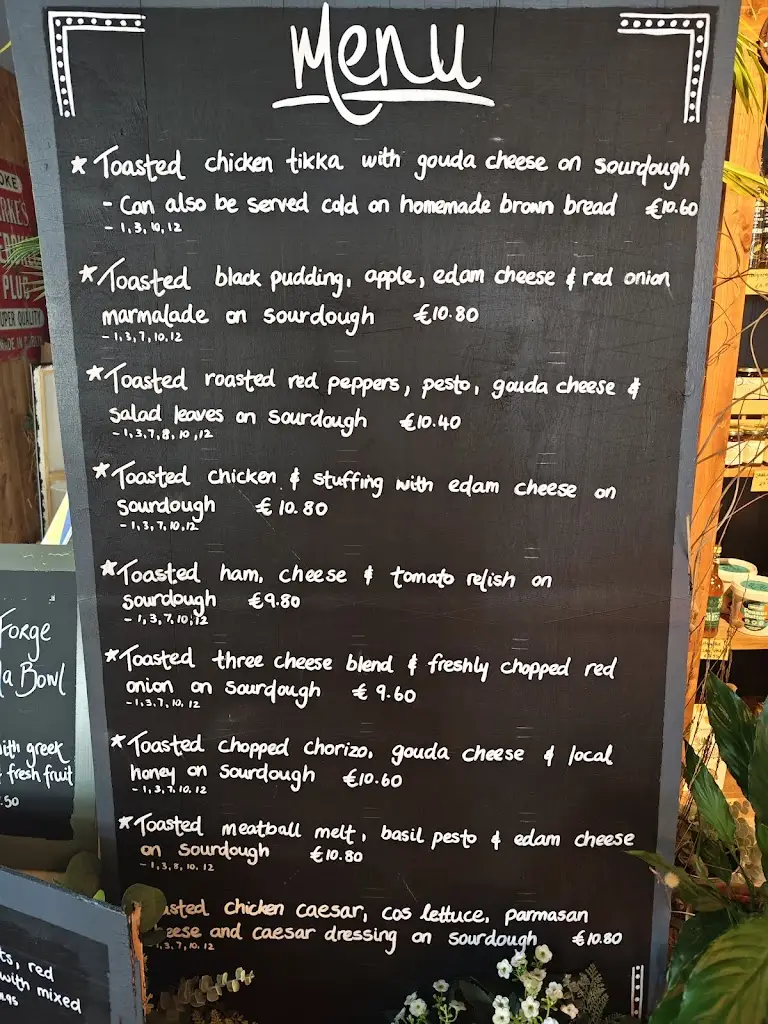 Menu
* Toasted chicken tikka with gouda cheese on sourdough
- Can also be served cold on homemade brown bread €10.60
- 1, 3, 10, 12
* Toasted black pudding, apple, edam cheese & red onion
marmalade on sourdough €10.80
- 1, 3, 7, 10, 12
* Toasted roasted red peppers, pesto, gouda cheese &
salad leaves on sourdough €10.40
- 1, 3, 7, 8, 10, 12
* Toasted chicken & stuffing with edam cheese on
sourdough €10.80
- 1, 3, 7, 10, 12
* Toasted ham, cheese & tomato relish on
sourdough €9.80
- 1, 3, 7, 10, 12
* Toasted three cheese blend & freshly chopped red
onion on sourdough €9.60
- 1, 3, 7, 10, 12
* Toasted chopped chorizo, gouda cheese & local
honey on sourdough €10.60
- 1, 3, 7, 10, 12
* Toasted meatball melt, basil pesto & edam cheese
on sourdough €10.80
- 1, 3, 8, 10, 12
asted chicken caesar, cos lettuce, parmasan
eese and caesar dressing on sourdough €10.80
, 3, 7, 10, 12
Forge
la Bowl
ith greek
fresh fruit
.50
ts, red
with mixed
.95
OKE
PLUG
UPER QUALITY